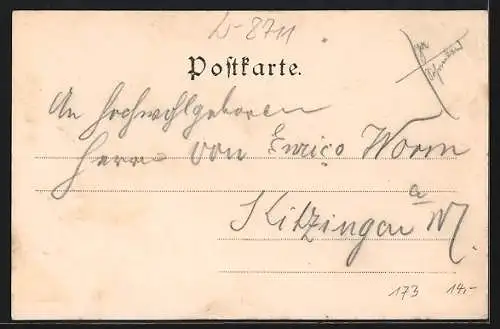 L-8711
Postkarte.
An Hochwohlgeboren
Herrn von Enrico Worm
Kitzingen a M.
173 14.-